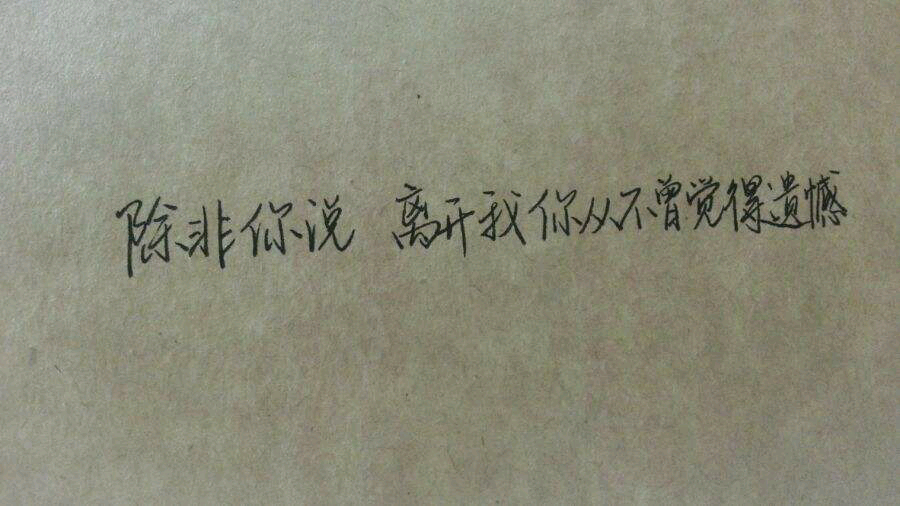 除非你说 离开我你从不曾觉得遗憾